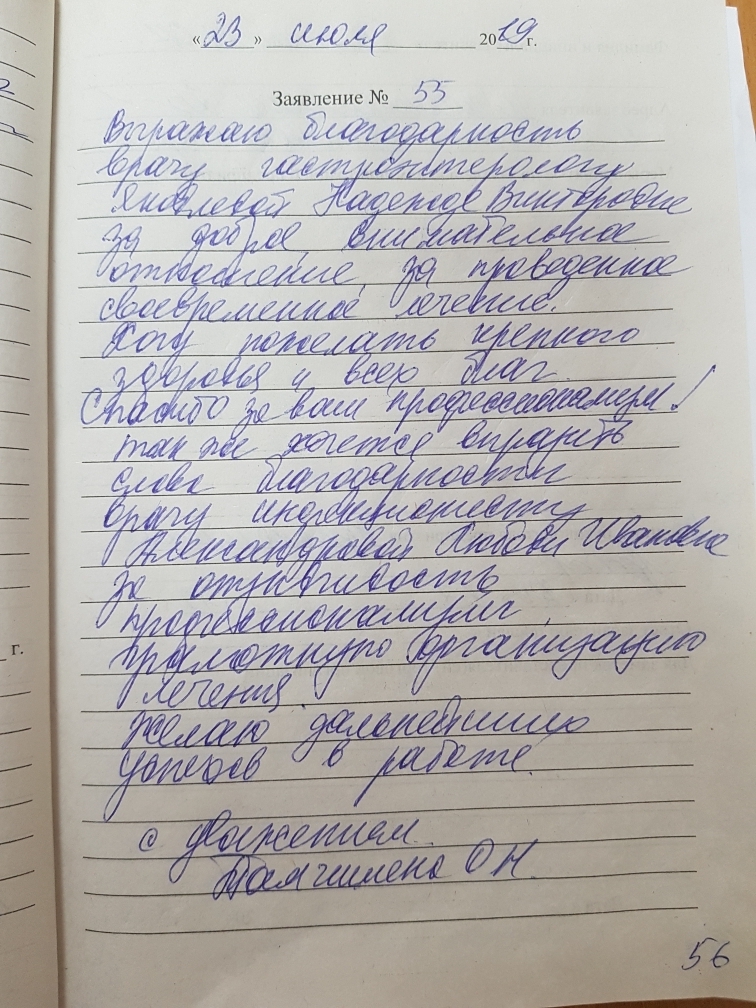 «23» июля 2019 г.
Заявление № 55
Выражаю благодарность
врачу гастроэнтерологу
Яковлевой Надежде Викторовне
за доброе, внимательное
отношение, за проведенное
своевременное лечение.
Хочу пожелать крепкого
здоровья и всех благ
Спасибо за ваш профессионализм!
так же хочется выразить
слова благодарности
врачу инфекционисту
Александровой Любови Ивановне
за отзывчивость
профессионализм,
грамотную организацию
лечения.
Желаю дальнейших
успехов в работе.
с уважением
О Н.
г.
56